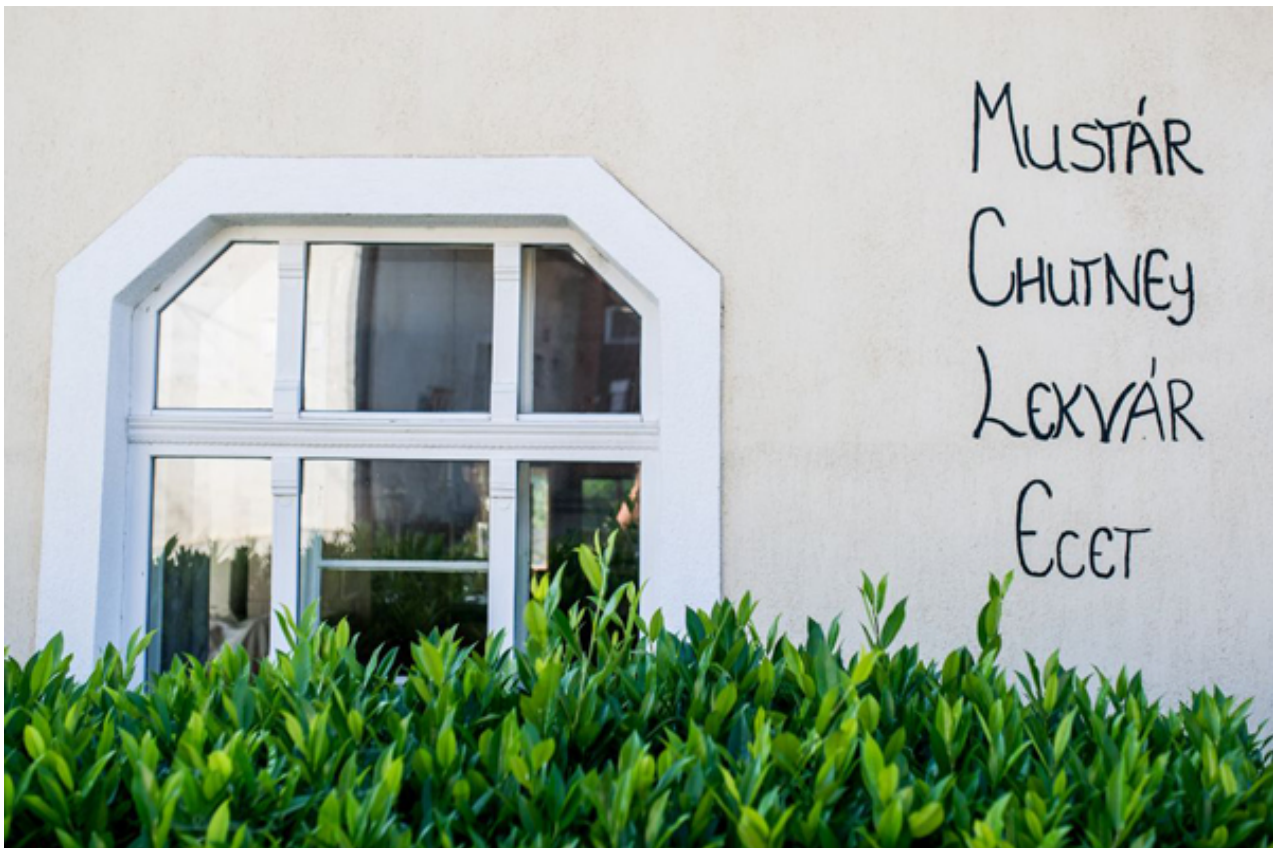 Mustár
Chutney
Lekvár
Ecet